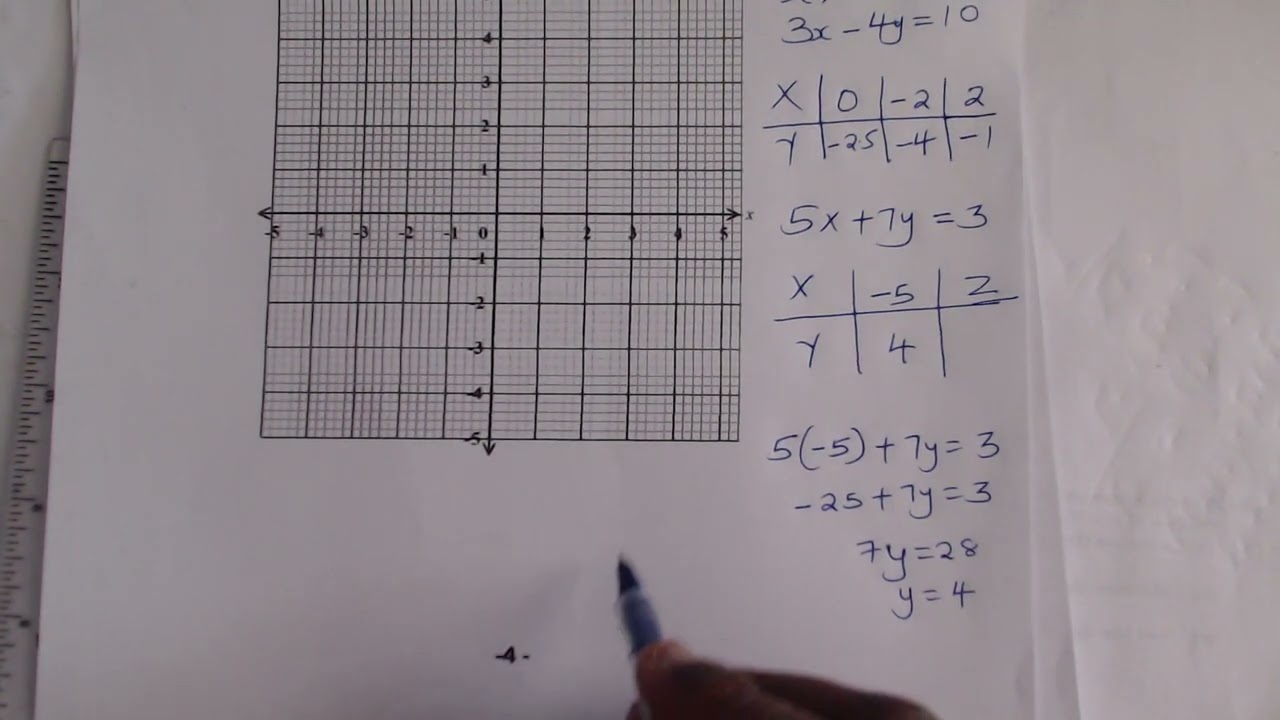 3x - 4y = 10
X | 0 | -2 | 2
Y | -2.5 | -4 | -1
5x + 7y = 3
X | -5 | 2
Y | 4 |
5(-5) + 7y = 3
-25 + 7y = 3
7y = 28
y = 4
4
3
2
1
x
-5 -4 -3 -2 -1 0 1 2 3 4 5
-1
-2
-3
-4
-5
-4-